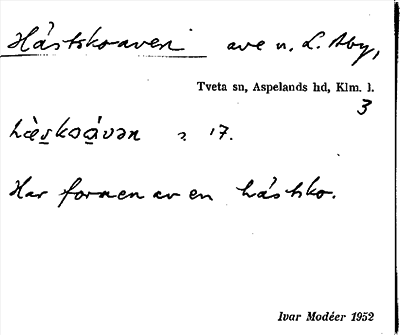 Hästskoaven ave n. L. Aby,
Tveta sn, Aspelands hd, Klm. l.
3
hæ̀skoávən 2 17.
Har formen av en hästsko.
Ivar Modéer 1952